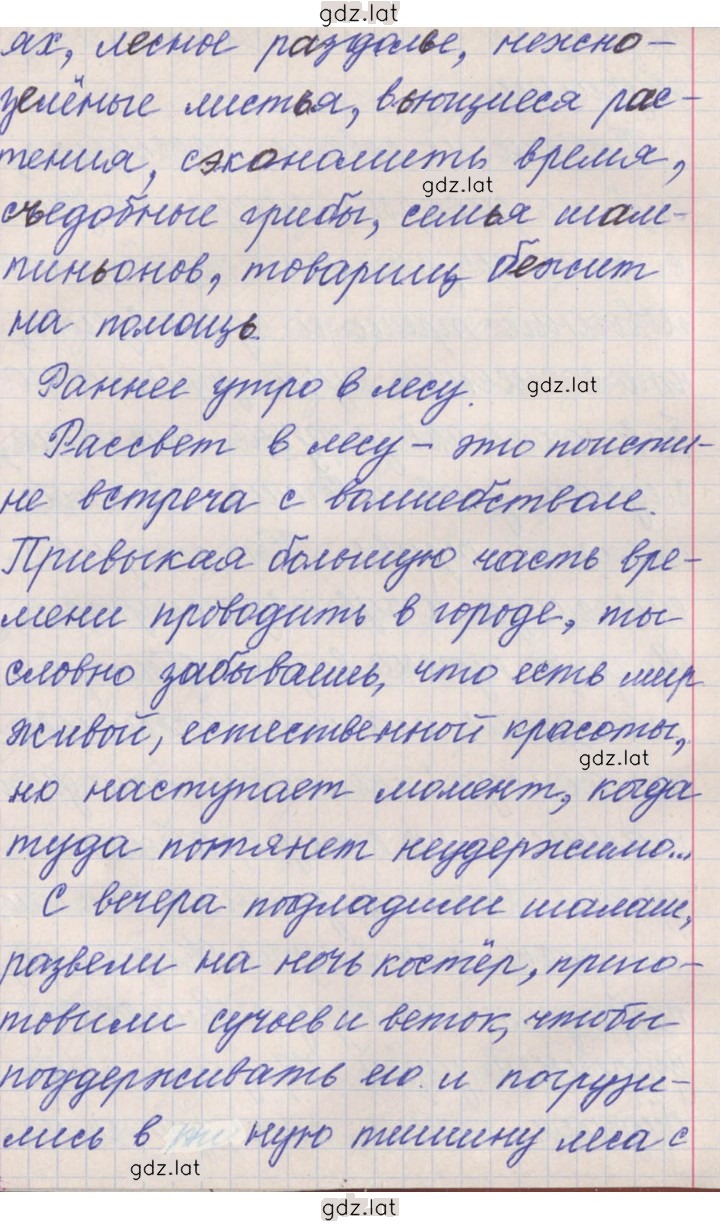 gdz.lat
ях, лесное раздолье, нежно-
зелёные листья, вьющиеся рас-
тения, сэкономить время,
gdz.lat
съедобные грибы, семья шам-
пиньонов, товарищ бежит
на помощь.
Раннее утро в лесу.
gdz.lat
Рассвет в лесу – это поисти-
не встреча с волшебством.
Привыкая большую часть вре-
мени проводить в городе, ты
словно забываешь, что есть мир
живой, естественной красоты,
gdz.lat
но наступает момент, когда
туда потянет неудержимо...
С вечера подладили шалаш,
развели на ночь костёр, приго-
товили сучьев и веток, чтобы
поддерживать его и погрузи-
лись в ную тишину леса с
gdz.lat
gdz.lat